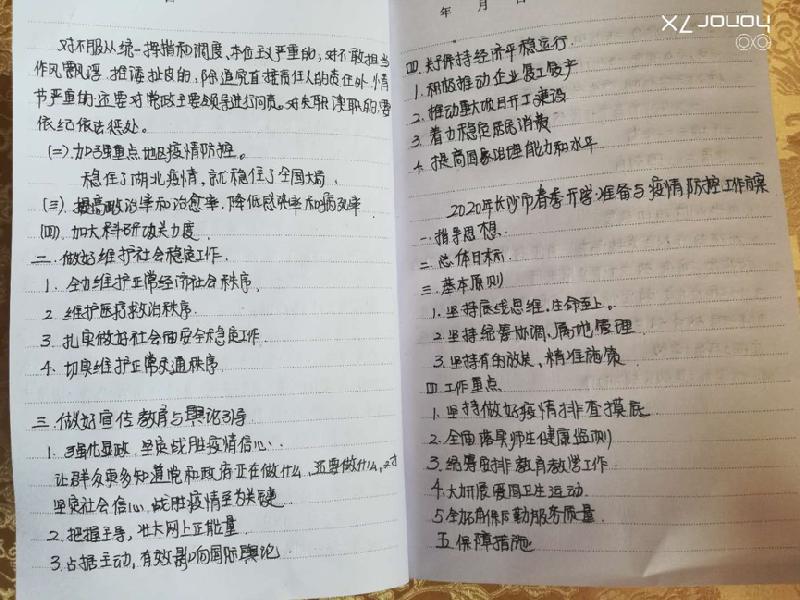 对不服从统一指挥和调度,本位主义严重的,对不敢担当
作风飘浮、推诿扯皮的,除追究直接责任人的责任外,情
节严重的还要对党政主要领导进行问责。对失职渎职的,要
依纪依法惩处。
(二)加强重点地区疫情防控。
稳住了湖北疫情,就稳住了全国大局。
(三)提高收治率和治愈率,降低感染率和病死率
(四)加大科研攻关力度
二、做好维护社会稳定工作.
1. 全力维护正常经济社会秩序,
2 维护医疗救治秩序.
3. 扎实做好社会面安全稳定工作
4. 切实维护正常交通秩序
三.做好宣传教育与舆论引导
1. 强化显政 坚定战胜疫情信心.
让群众更多知道党和政府正在做什么,还要做什么,对
坚定社会信心,战胜疫情至为关键
2. 把握主导,壮大网上正能量
3. 占据主动,有效影响国际舆论
年 月 日
四、关于保持经济平稳运行.
1. 积极推动企业复工复产
2. 推动重大项目开工建设
3. 着力稳定居民消费
4. 提高国家治理能力和水平
2020年长沙市春季开学准备与疫情防控工作方案
一.指导思想.
二.总体目标.
三.基本原则
1. 坚持底线思维.生命至上。
2. 坚持统筹协调、属地管理
3. 坚持有的放矢,精准施策
四.工作重点
1. 坚持做好疫情排查摸底
2. 全面落实师生健康监测
3. 统筹安排教育教学工作
4. 大力开展爱国卫生运动.
5 全力确保后勤服务质量.
五.保障措施
honor 7X